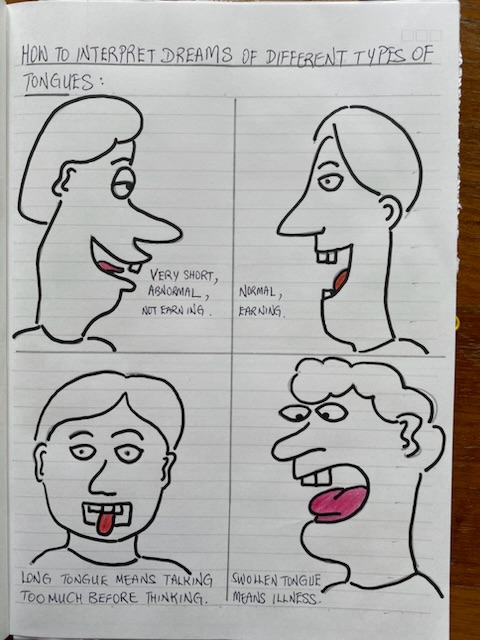 HOW TO INTERPRET DREAMS OF DIFFERENT TYPES OF
TONGUES:
VERY SHORT,
ABNORMAL,
NOT EARNING.
NORMAL,
EARNING.
LONG TONGUE MEANS TALKING
TOO MUCH BEFORE THINKING.
SWOLLEN TONGUE
MEANS ILLNESS.